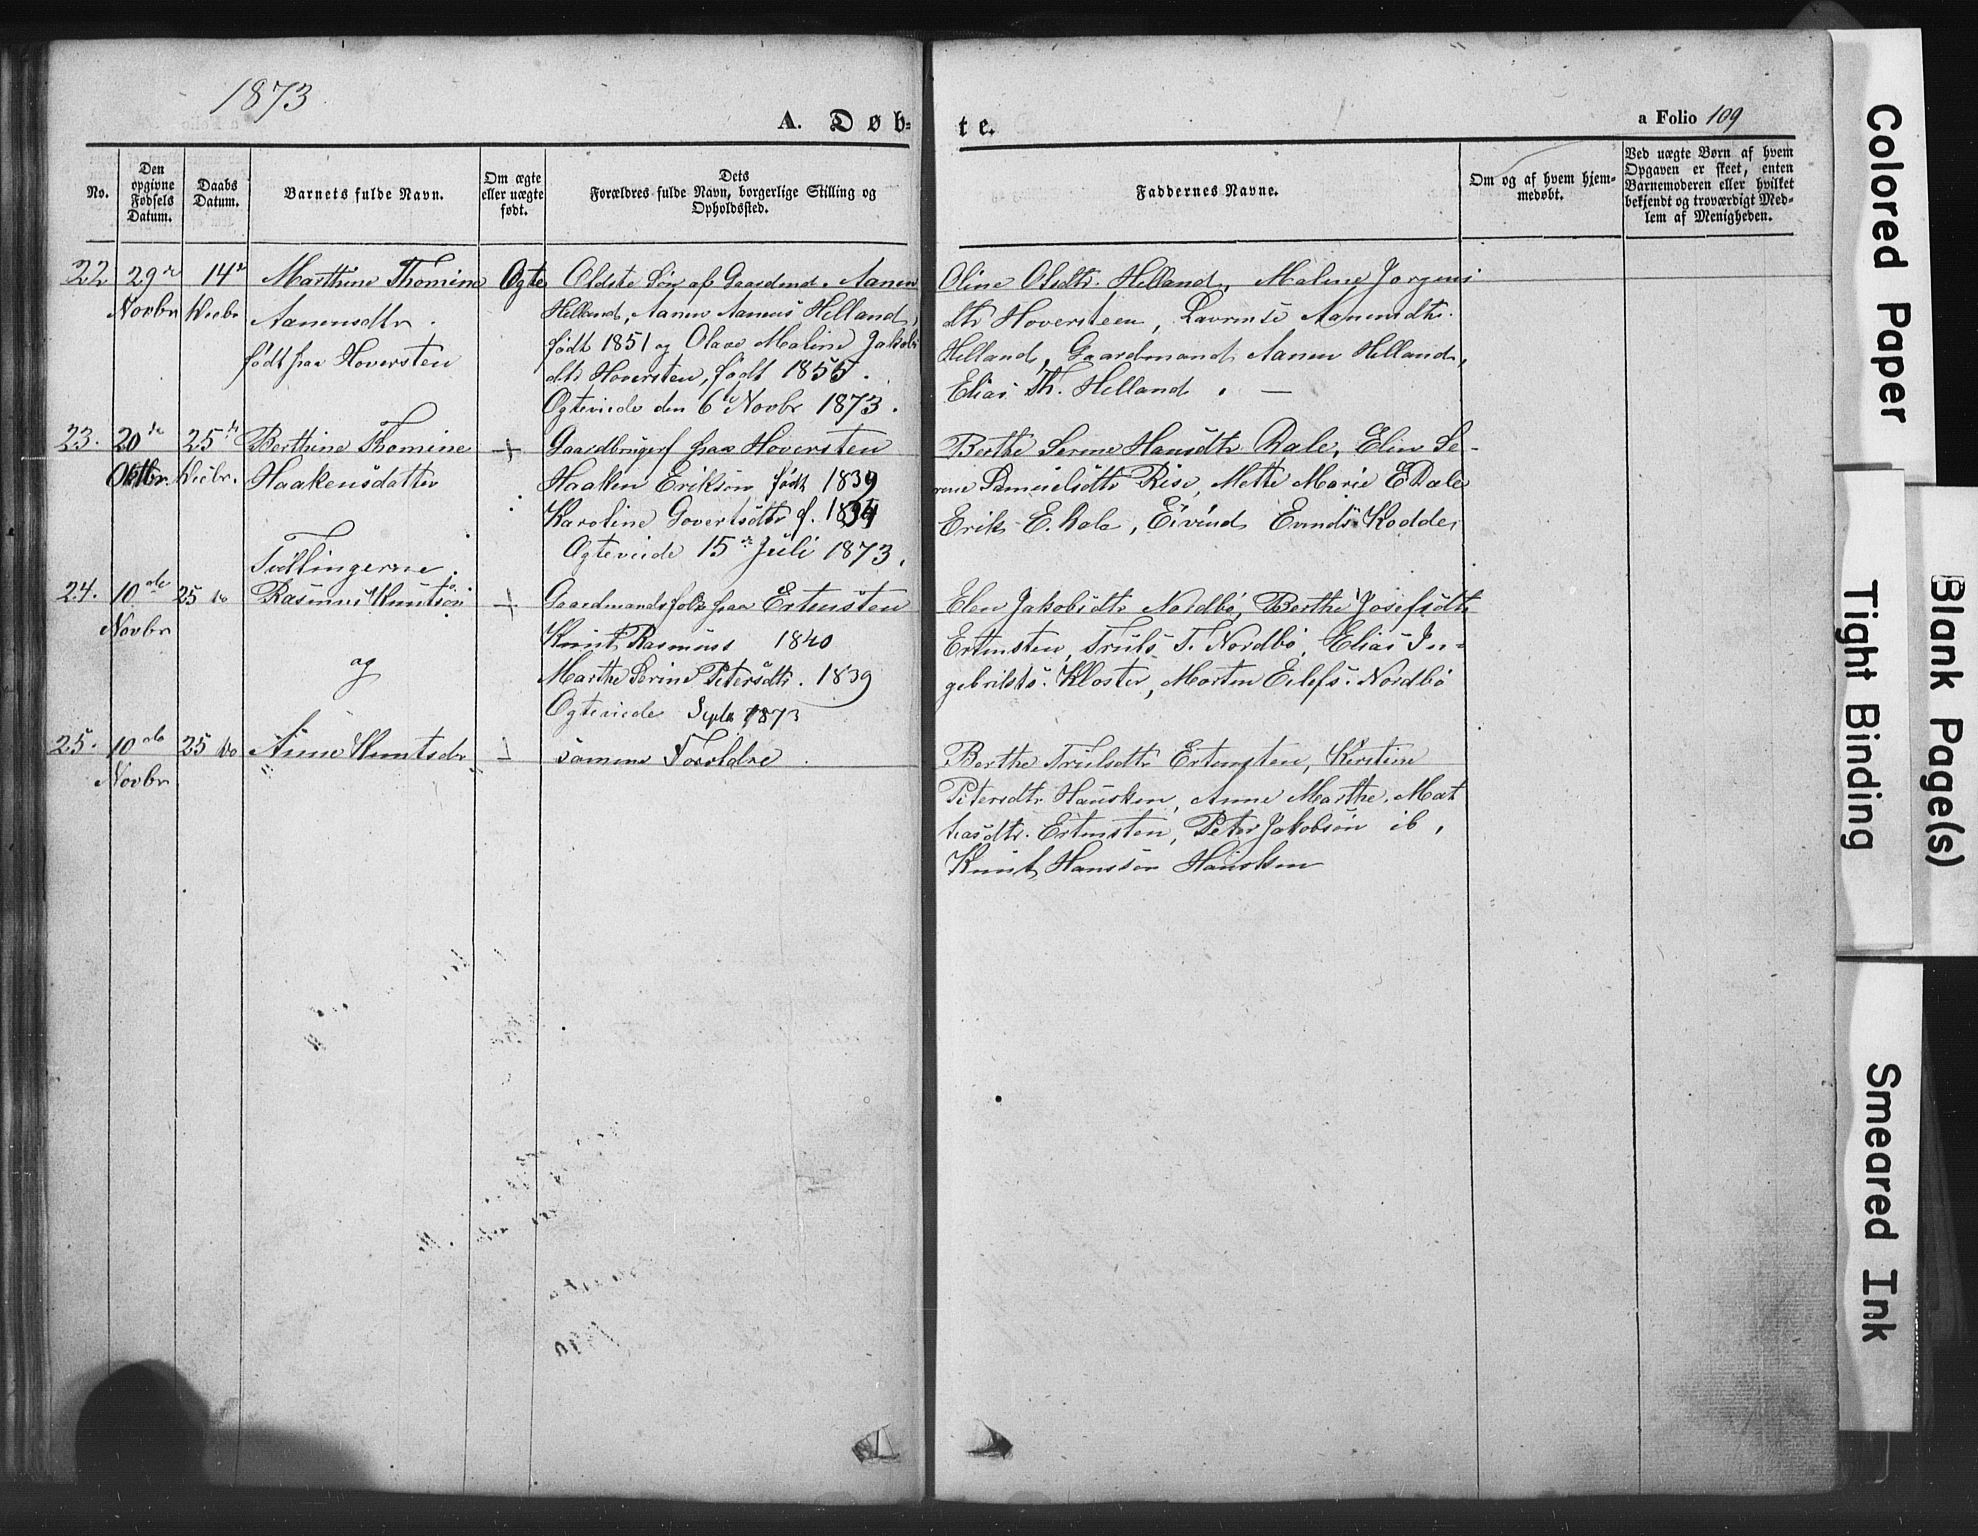 1873
A. Døb-
te.
a Folio 109
No.
Den opgivne Fødsels Datum.
Daabs Datum.
Barnets fulde Navn.
Om ægte eller uægte født.
Dets Forældres fulde Navn, borgerlige Stilling og Opholdssted.
Faddernes Navne.
Om og af hvem hjemmedøbt.
Ved uægte Børn af hvem Opgaven er skeet, enten Barnemoderen eller hvilket bekjendt og troværdigt Medlem af Menigheden.
22 29 14 Marthine Thomine Ægte Ældste Søn af Gaardmd. Aanen
Novbr Decbr Aanensdtr. Helland, Aanen Aanens Helland,
født paa Hoversten født 1851 og Olave Maline Jakobs
dtr Hoversten, født 1855.
Ægteviede den 6te Novbr 1873.
Oline Olsdtr. Helland, Maline Jørgens
dtr Hoversteen, Lavrense Aanensdtr.
Helland, Gaardmand Aanen Helland,
Elias Th. Helland. —
23. 20de 25de Berthine Thomine + Gaardbrugerf. paa Hoversten
Oktbr. Decbr. Haakensdatter Haaken Erikson født 1839
Karoline Govertsdtr f. 1834
Ægteviede 15de Juli 1873.
Berthe Serine Hansdtr Dale, Elen Se-
rine Samuelsdtr Rise, Mette Marie E. Dale
Erik E. Dale, Eivind Kodde,
Tvillingerne.
24. 10de 25 do Rasmus Knutson + Gaardmandsfolk paa Ertensten
Novbr Knut Rasmus 1840
og Marthe Serine Petersdtr. 1839
Ægteviede Septr 1873
Elen Jakobsdtr Nordbø, Berthe Josefsdtr
Ertensten, Truls T. Nordbø, Elias In-
gebrikts. Kloster, Morten Eilefs. Nordbø
25. 10de 25 do Anne Knutsdr " + " samme Forældre
Novbr
Berthe Trulsdtr Ertensten, Kirstine
Petersdtr Hausken, Anne Marthe Mat
hiasdtr. Ertensten, Peter Jakobson ib,
Knut Hansson Hausken
Colored Paper
Blank Page(s)
Tight Binding
Smeared Ink